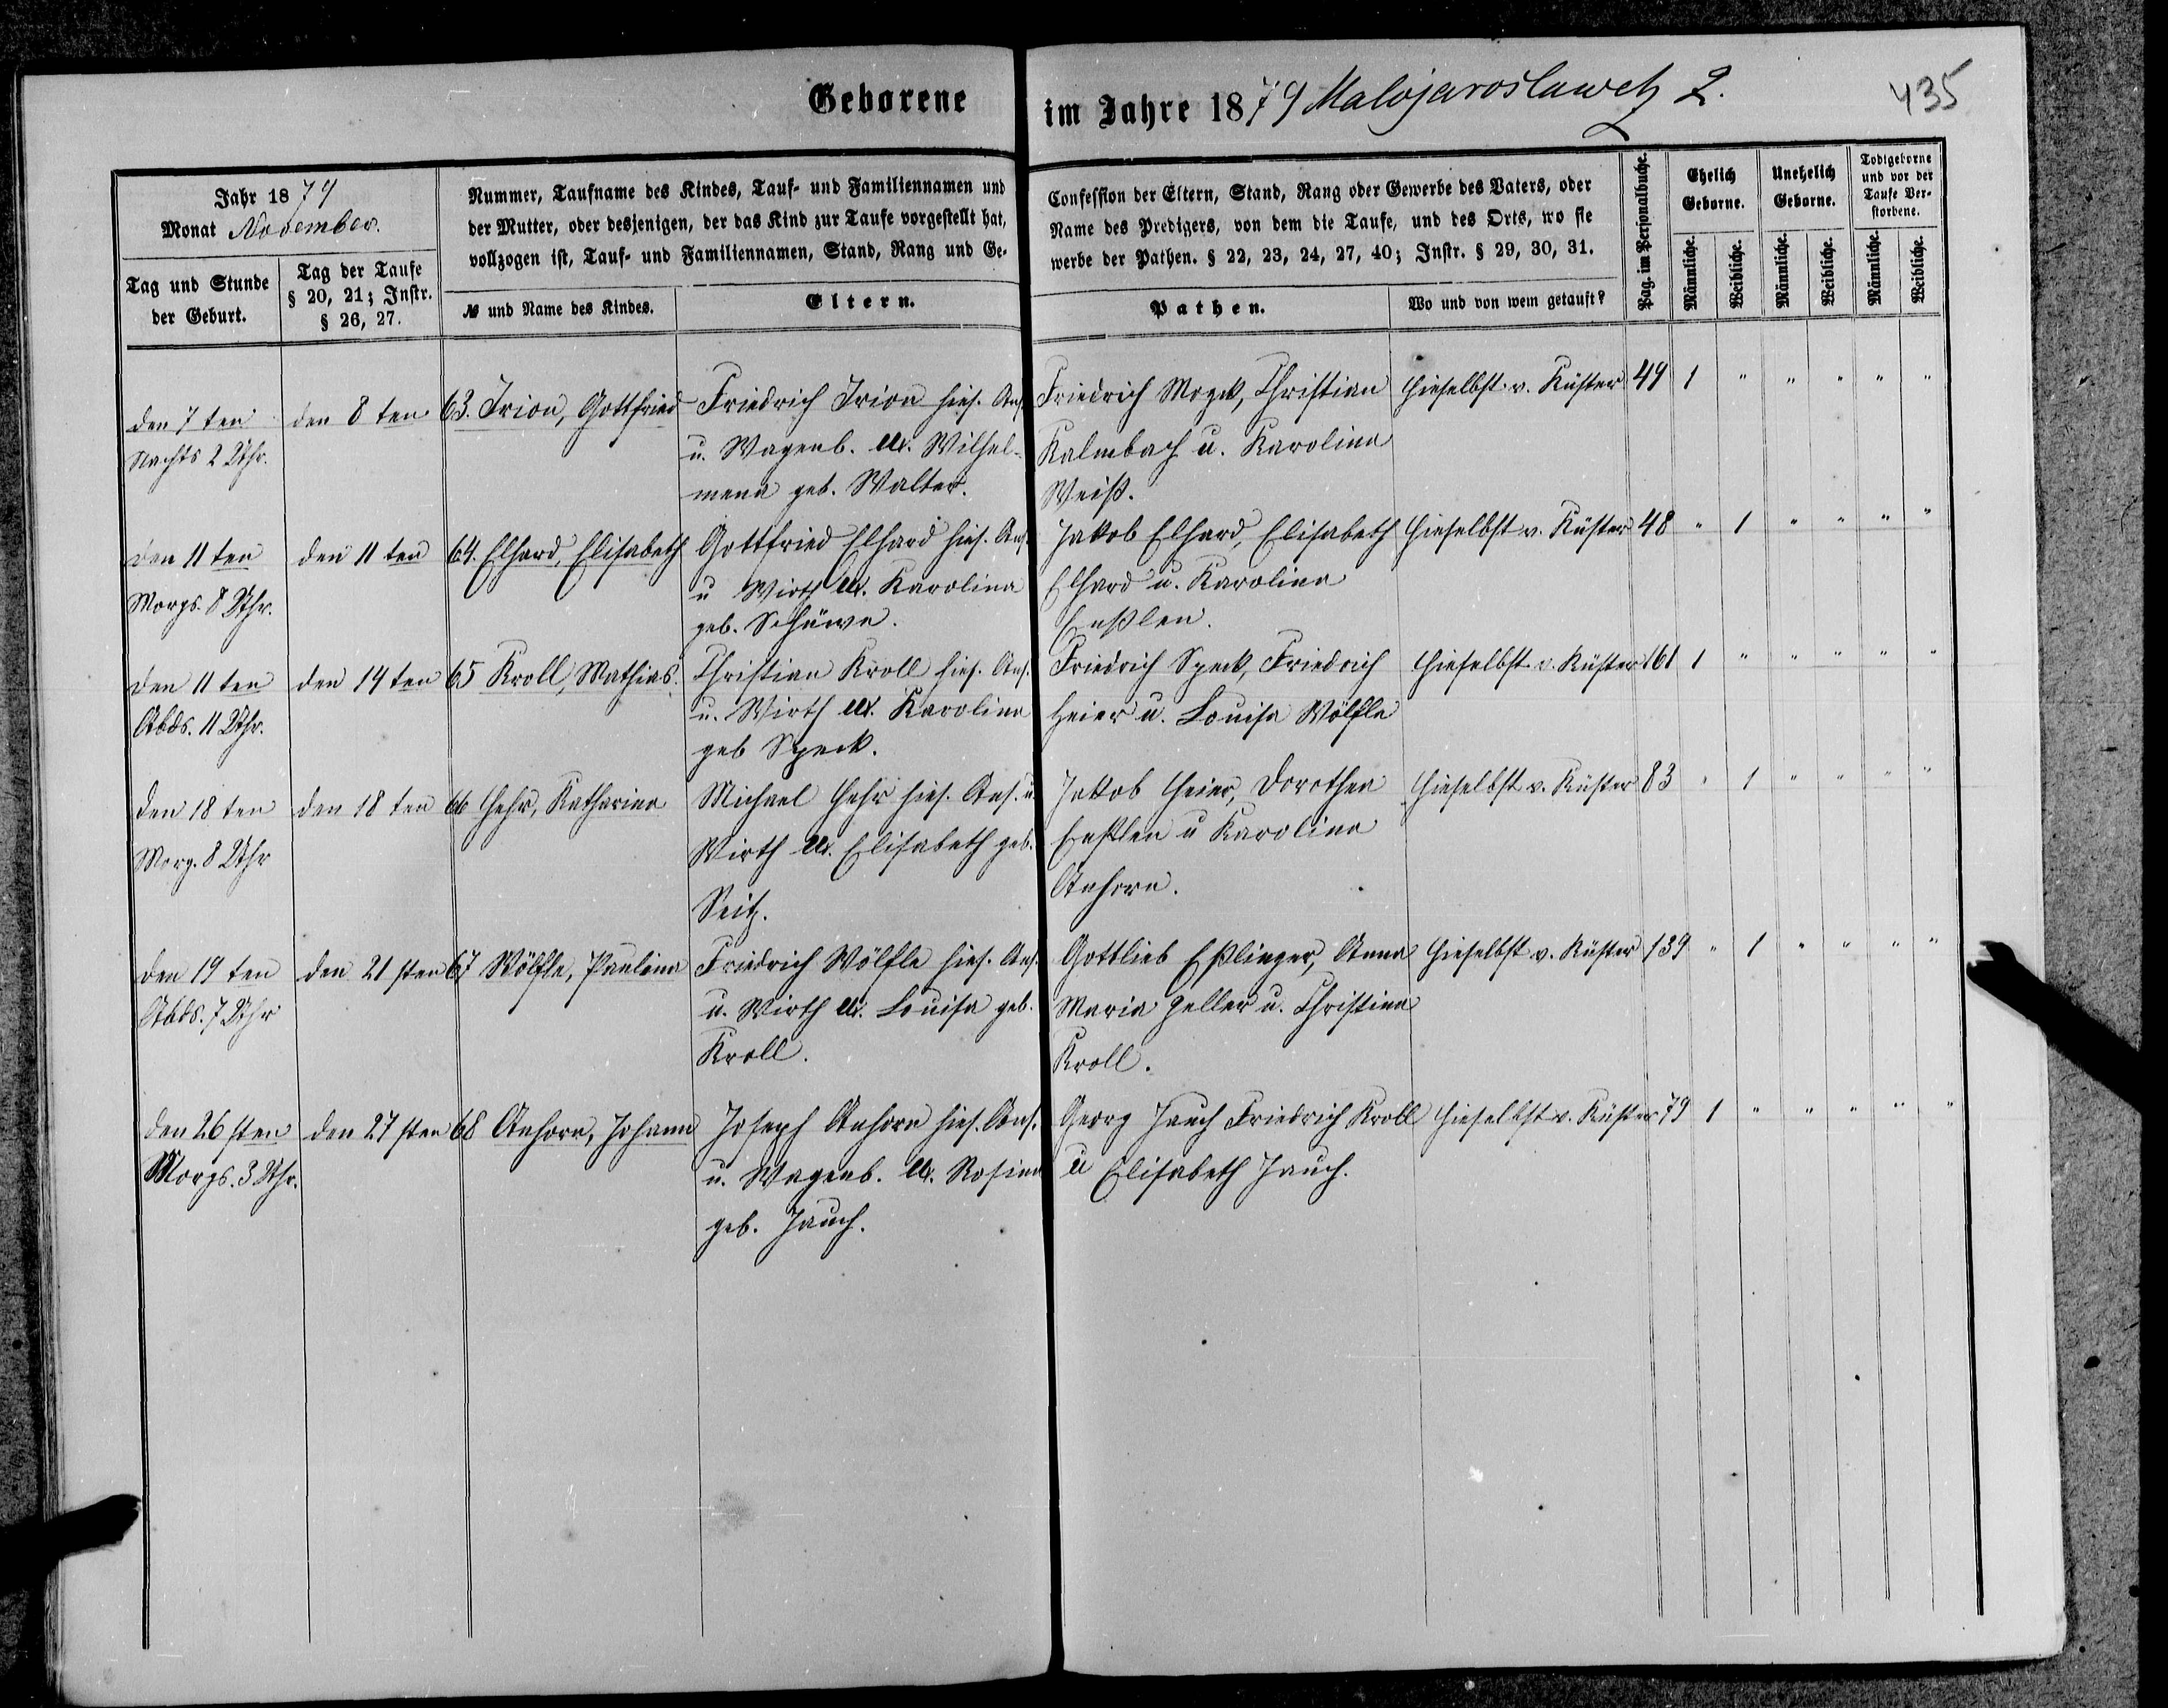 Geborene im Jahre 1879 Malojaroslawetz 2.
435
Jahr 1879
Monat November.
Tag und Stunde der Geburt.
Tag der Taufe § 20, 21; Instr. § 26, 27.
Nummer, Taufname des Kindes, Tauf- und Familiennamen und
der Mutter, oder desjenigen, der das Kind zur Taufe vorgestellt hat,
vollzogen ist, Tauf- und Familiennamen, Stand, Rang und Ge-
№ und Name des Kindes.
Eltern.
Confession der Eltern, Stand, Rang oder Gewerbe des Vaters, oder
Name des Predigers, von dem die Taufe, und des Orts, wo sie
werbe der Pathen. § 22, 23, 24, 27, 40; Instr. § 29, 30, 31.
Pathen.
Wo und von wem getauft?
Pag. im Personalbuche.
Ehelich Geborne.
Unehelich Geborne.
Todtgeborne und vor der Taufe Verstorbene.
Männliche. Weibliche. Männliche. Weibliche. Männliche. Weibliche.
den 7 ten
Nachts 2 Uhr.
den 8 ten
63. Irion, Gottfried
Friedrich Irion hies. Ans.
u. Wagenb. ux. Wilhel-
mena geb. Walter.
Friedrich Mogck, Christian
Kalmbach u. Karolina
Weiß.
Hieselbst v. Küster 49 1 " " " " "
den 11 ten
Morgs. 8 Uhr.
den 11 ten
64. Elhard, Elisabeth
Gottfried Elhard hies. Ans.
u Wirth ux. Karolina
geb. Schüwe.
Jakob Elhard, Elisabeth
Elhard u. Karolina
Enßlen.
Hieselbst v. Küster 48 " 1 " " " "
den 11 ten
Abds. 11 Uhr.
den 14 ten
65 Kroll, Mathias.
Christian Kroll hies. Ans.
u. Wirth ux. Karolina
geb Speck.
Friedrich Speck, Friedrich
Heier u. Louisa Wölfle
Hieselbst v. Küster 161 1 " " " " "
den 18 ten
Morg. 8 Uhr
den 18 ten
66 Hehr, Katharina
Michael Hehr hies. Ans. u.
Wirth ux. Elisabeth geb.
Seitz.
Jakob Heier, Dorothea
Enßlen u Karolina
Anhorn.
Hieselbst v. Küster 83 " 1 " " " "
den 19 ten
Abds. 7 Uhr
den 21 sten
67 Wölfle, Paulina
Friedrich Wölfle hies. Ans.
u. Wirth ux. Louisa geb.
Kroll.
Gottlieb Eßlinger, Anna
Maria Zeller u. Christina
Kroll.
Hieselbst v. Küster 139 " 1 " " " "
den 26 sten
Morgs. 3 Uhr.
den 27 sten
68 Anhorn, Johann
Joseph Anhorn hies. Ans.
u. Wagenb. ux. Rosina
geb. Jauch.
Georg Jauch Friedrich Kroll
u Elisabeth Jauch.
Hieselbst v. Küster 79 1 " " " " "